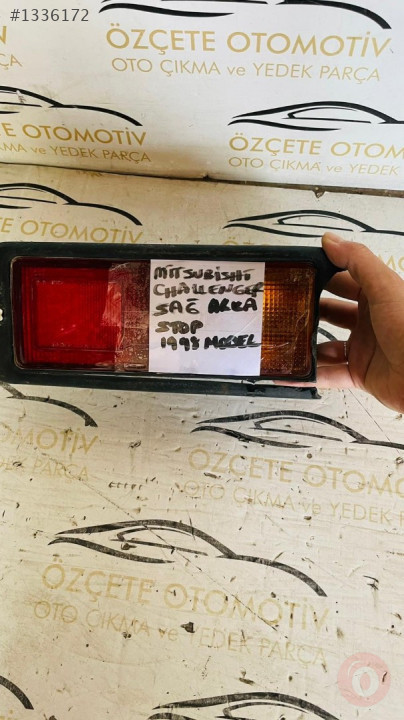 #1336172
ÖZÇETE OTOMOTİV
OTO ÇIKMA ve YEDEK PARÇA
ÖZÇETE OTOMOTİV
OTO ÇIKMA ve YEDEK PARÇA
OTOMOTİV
ve YEDEK PARÇA
MITSUBISHI
CHALLENGER
SAĞ ARKA
STOP
1998 MODEL
ÖZÇETE OTOMO
OTO ÇIKMA ve YEDEK
OTOMOTİV
YEDEK PARÇA
ÖZÇETE OTOMOTİV
OTO ÇIKMA ve YEDEK PARÇA